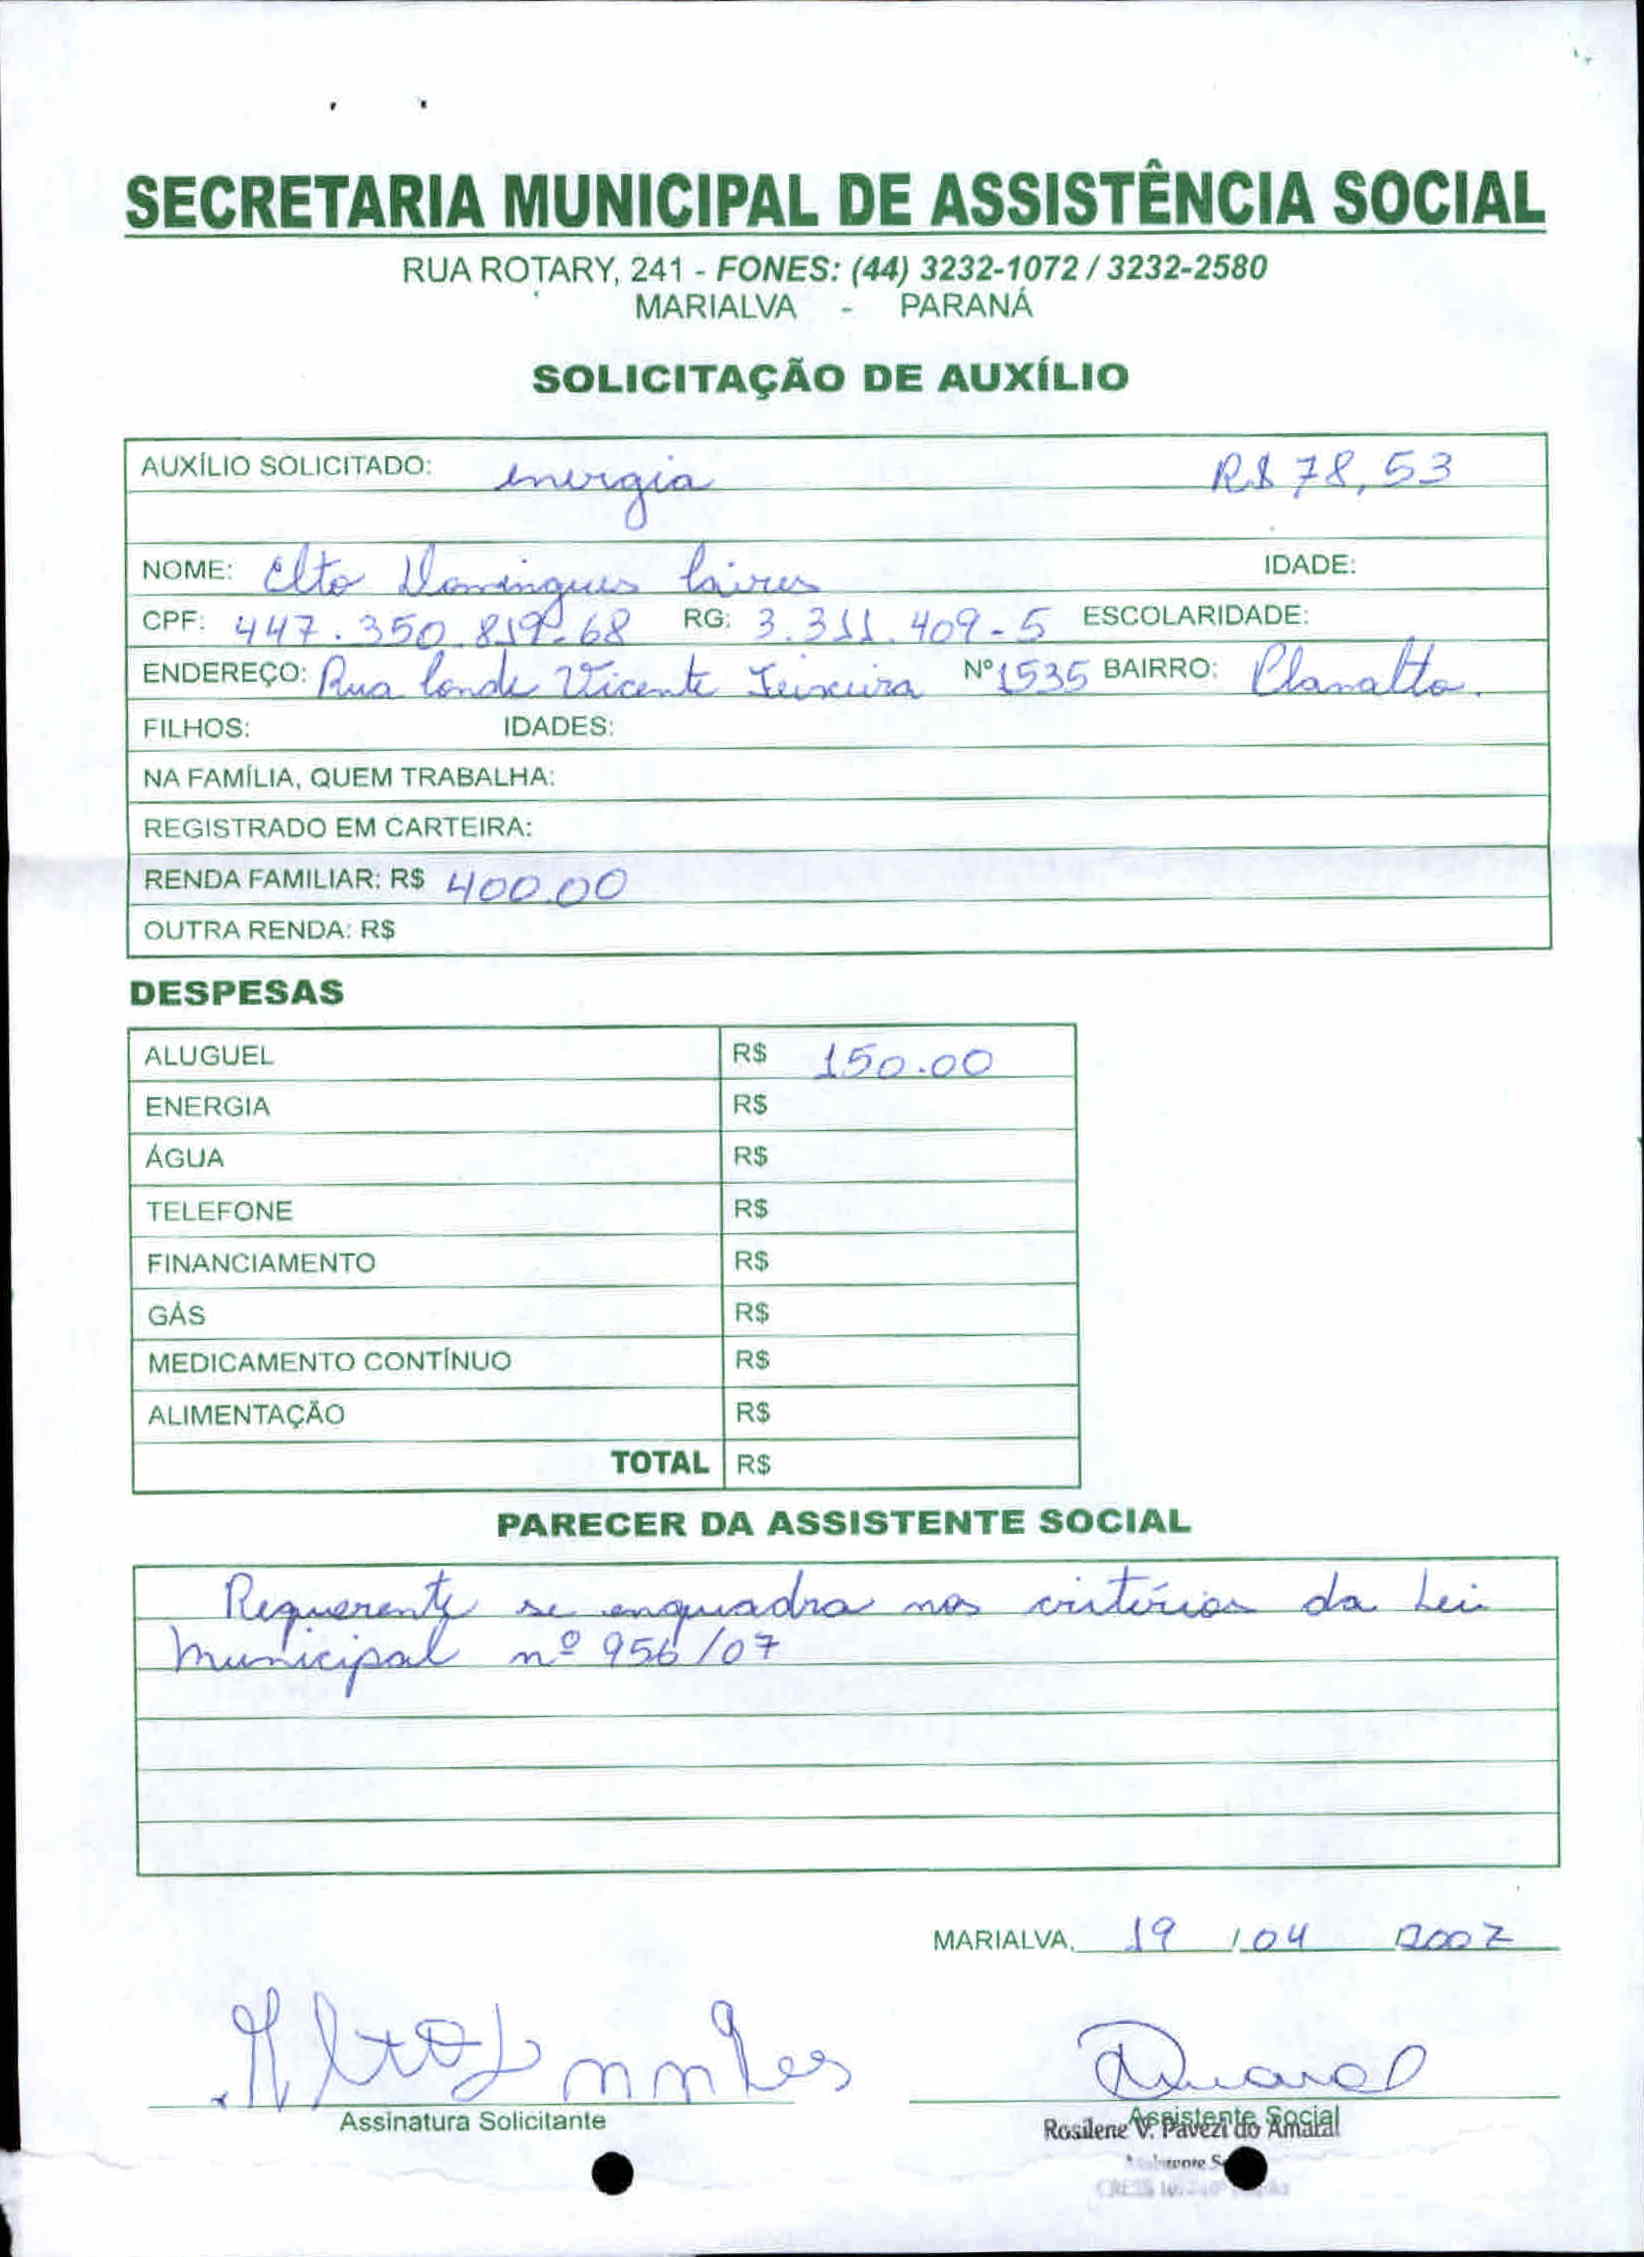 SECRETARIA MUNICIPAL DE ASSISTÊNCIA SOCIAL
RUA ROTARY, 241 - FONES: (44) 3232-1072 / 3232-2580
MARIALVA - PARANÁ
SOLICITAÇÃO DE AUXÍLIO
AUXÍLIO SOLICITADO: energia R$ 78,53
NOME: Elto Domingues IDADE:
CPF: 447.350.819-68 RG: 3.311.409-5 ESCOLARIDADE:
ENDEREÇO: Rua Conde Vicente Teixeira Nº 1535 BAIRRO: Planalto.
FILHOS: IDADES:
NA FAMÍLIA, QUEM TRABALHA:
REGISTRADO EM CARTEIRA:
RENDA FAMILIAR: R$ 400.00
OUTRA RENDA: R$
DESPESAS
ALUGUEL R$ 150.00
ENERGIA R$
ÁGUA R$
TELEFONE R$
FINANCIAMENTO R$
GÁS R$
MEDICAMENTO CONTÍNUO R$
ALIMENTAÇÃO R$
TOTAL R$
PARECER DA ASSISTENTE SOCIAL
Requerente se enquadra nos critérios da Lei
Municipal nº 956/07
MARIALVA, 19 / 04 2007
Amaral
Assinatura Solicitante Assistente Social
Rosilene V. Pavezi do Amaral